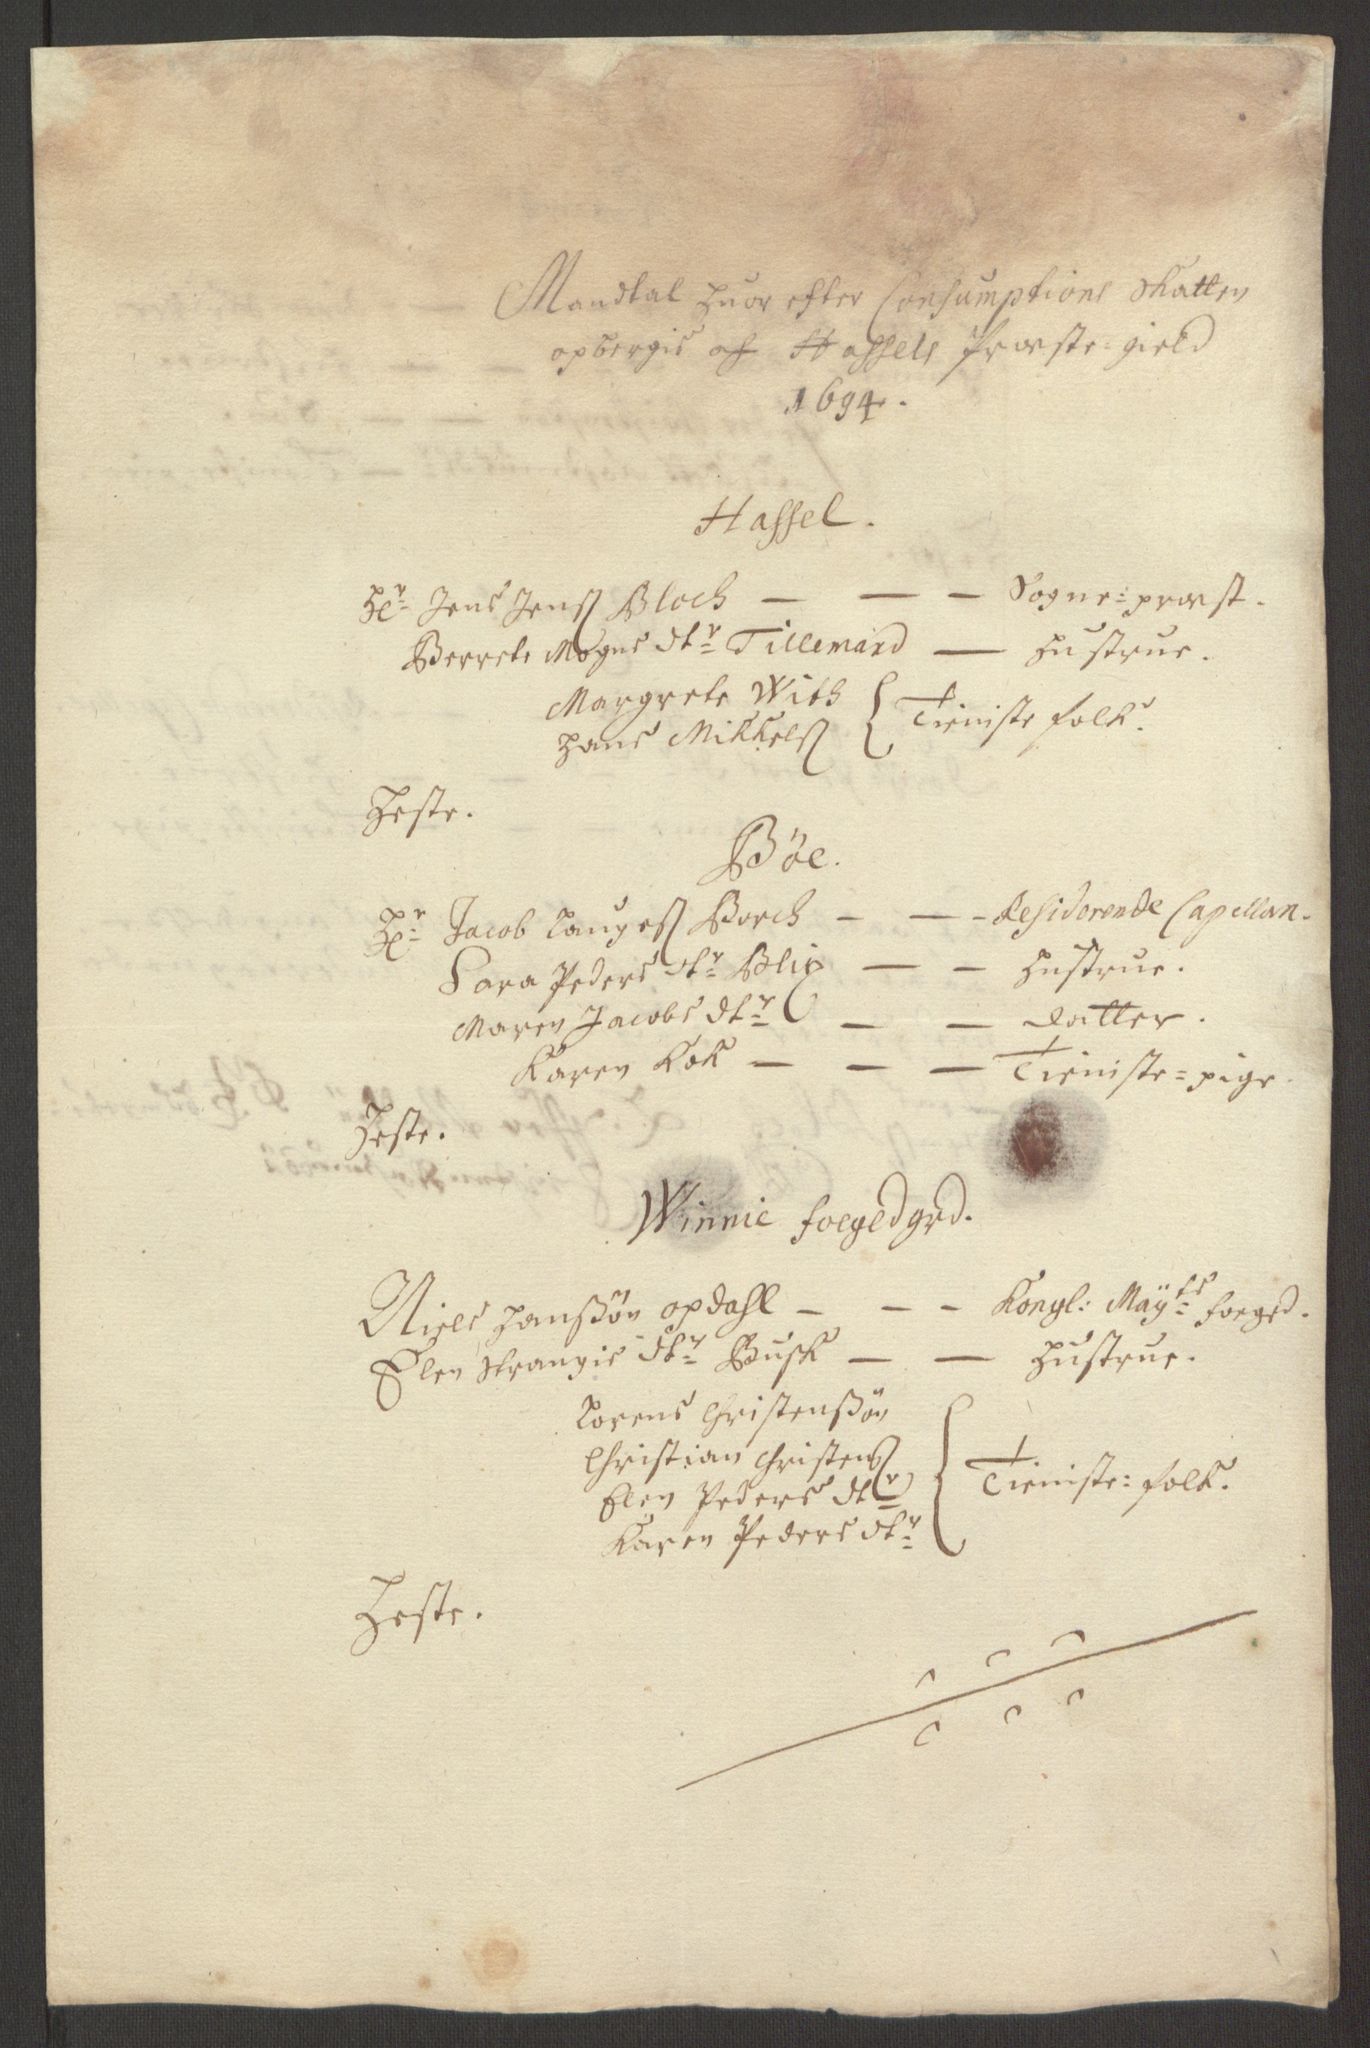 Mandtal huor efter Consumptions Skatten
opbergis af Hassels Præste-gield
1694.
Hassel.
Hr Jens Jenß Bloch — — — Sogne-præst.
Berrete Mogns dtr Tillemand — hustrue.
Margrete With
Hans Mikkelß { Tieniste folk.
Heste.
Böe.
Hr Jacob Laugeß Borch — — — Residerende Capellan.
Sara Peders dtr Blix — — hustrue.
Maren Jacobs dtr — — datter.
Karen Kok — — — Tieniste-pige.
Heste.
Winnie foegedgrd.
Niels Hanßön opdahl — — — Kongl: Mayts foeged.
Elen Strangis dtr Busk — — hustrue.
Lorens Christenßön
Christian Christenß
Elen Peders dtr { Tieniste-folk.
Karen Peders dtr
Heste.